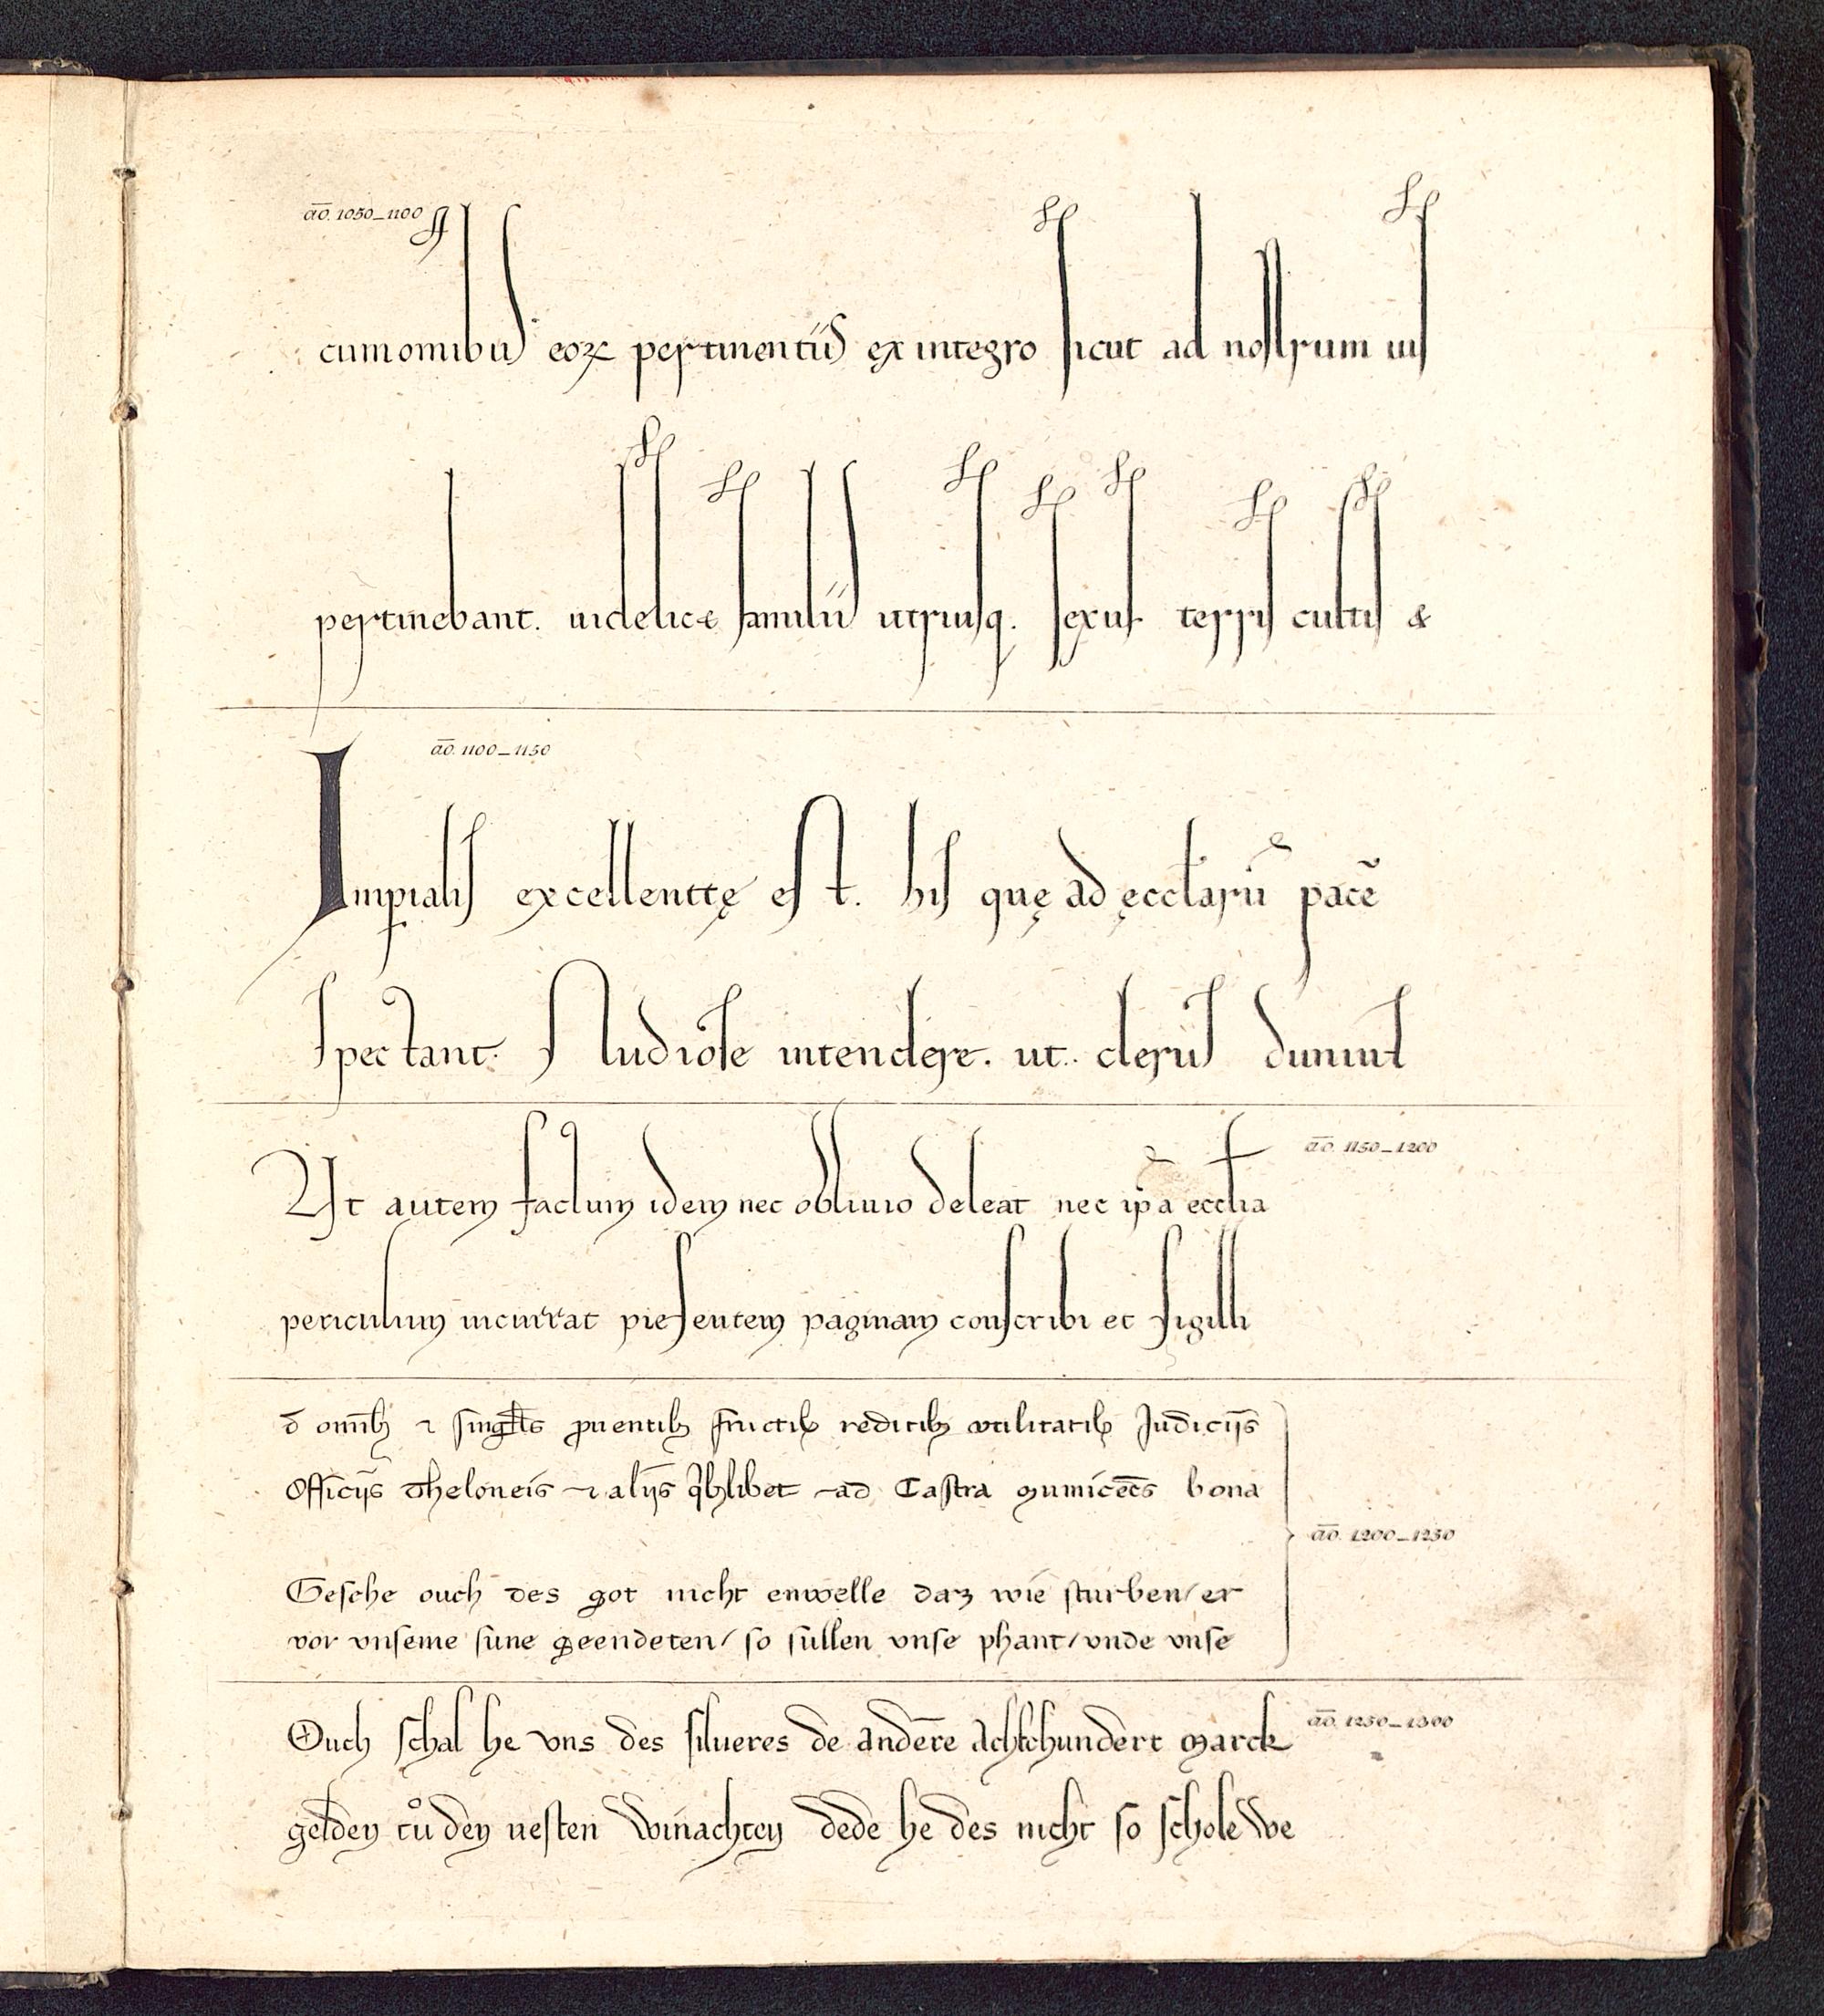 a͞o. 1050–1100
cum omibus eoꝝ pertinentiis ex integro sicut ad nostrum ius
pertinebant. uidelicet familiis utriusq. sexus terris cultis &
a͞o. 1100–1150
Imꝑialis excellentię est. his quę ad ęccłarū pacē
spectant. studiose intendere. ut. clerus
a͞o. 1150–1200
Ut autem factum idem nec obliuio deleat nec ip̄a eccłia
periculum incurrat presentem paginam conscribi et sigilli
d̄ om̄ibꝫ ⁊ singłis ꝓuentibꝫ fructibꝫ reditibꝫ vtilitatibꝫ Judicijs
Officijs Theloneis ⁊ alijs qͥbꝫlibet ad Castra bona
a͞o. 1200–1250
Gesche ouch des got nicht enwelle daz wie sturben/ er
vor vnseme sune geendeten/ so sullen vnse phant/ vnde vnse
a͞o. 1250–1300
Ouch schal he vns des silueres de andere achtehundert marck
gelden tů den nesten Winachten dede he des nicht so schole we